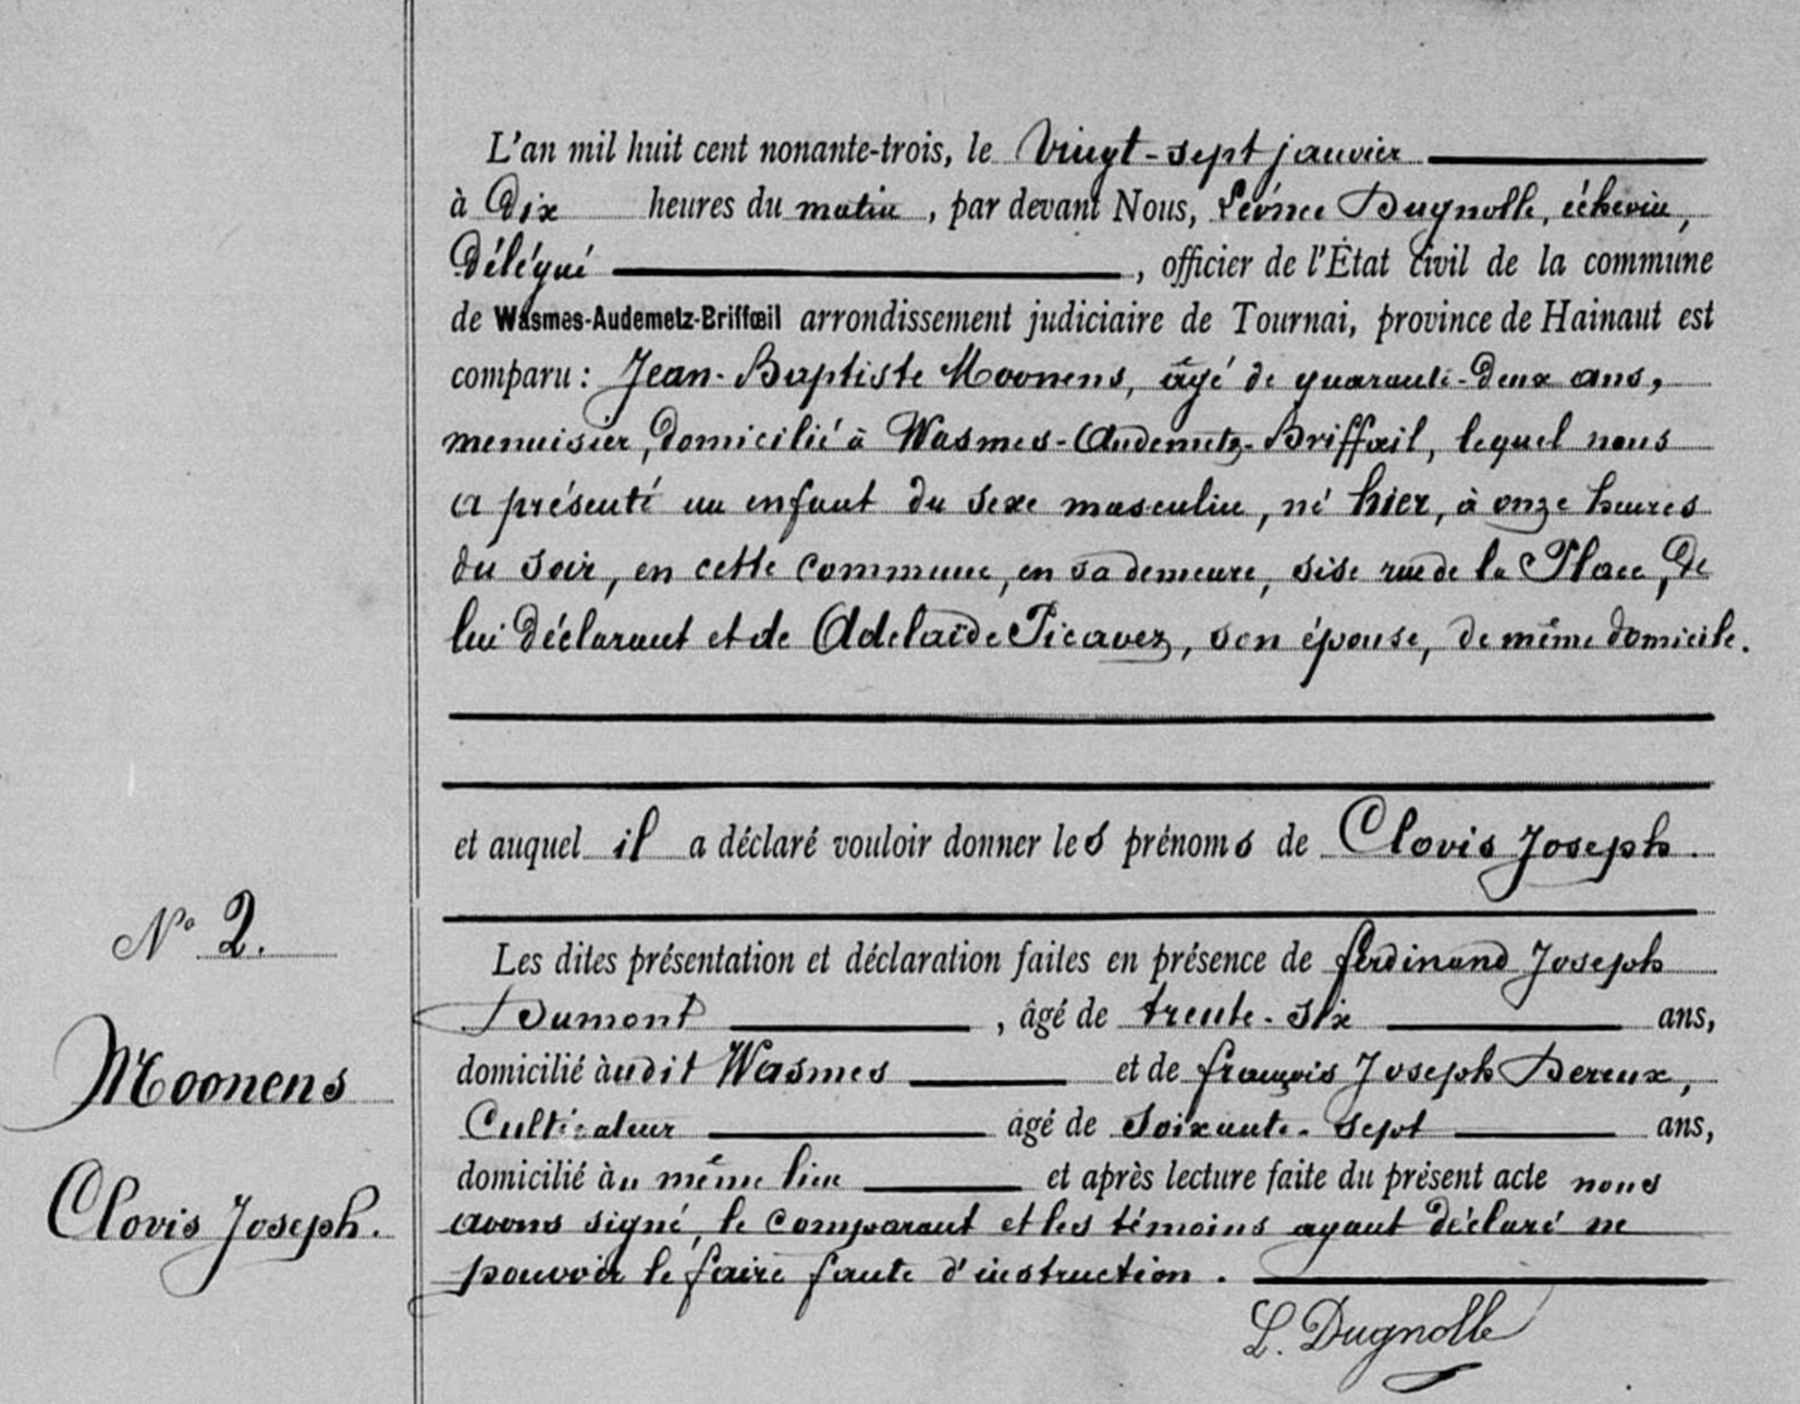 L'an mil huit cent nonante-trois, le Vingt-sept janvier
à Dix heures du matin, par devant Nous, Léonce Dugnolle, échevin,
Délégué, officier de l'État civil de la commune
de Wasmes-Audemetz-Briffœil arrondissement judiciaire de Tournai, province de Hainaut est
comparu : Jean-Baptiste Moonens, âgé de quarante-deux ans,
menuisier, domicilié à Wasmes-Audemetz-Briffœil, lequel nous
a présenté un enfant du sexe masculin, né hier, à onze heures
du soir, en cette commune, en sa demeure, sise rue de la Place, De
lui Déclarant et de Adelaïde Picavez, son épouse, de même domicile.
et auquel il a déclaré vouloir donner les prénoms de Clovis Joseph.
N° 2.
Moonens
Clovis Joseph.
Les dites présentation et déclaration faites en présence de ferdinand Joseph
Dumont, âgé de trente-six ans,
domicilié àudit Wasmes et de françois Joseph Dereux,
Cultivateur âgé de Soixante-sept ans,
domicilié àu même lieu et après lecture faite du présent acte nous
avons signé, le comparant et les témoins ayant déclaré ne
pouvoir le faire faute d'instruction.
L. Dugnolle